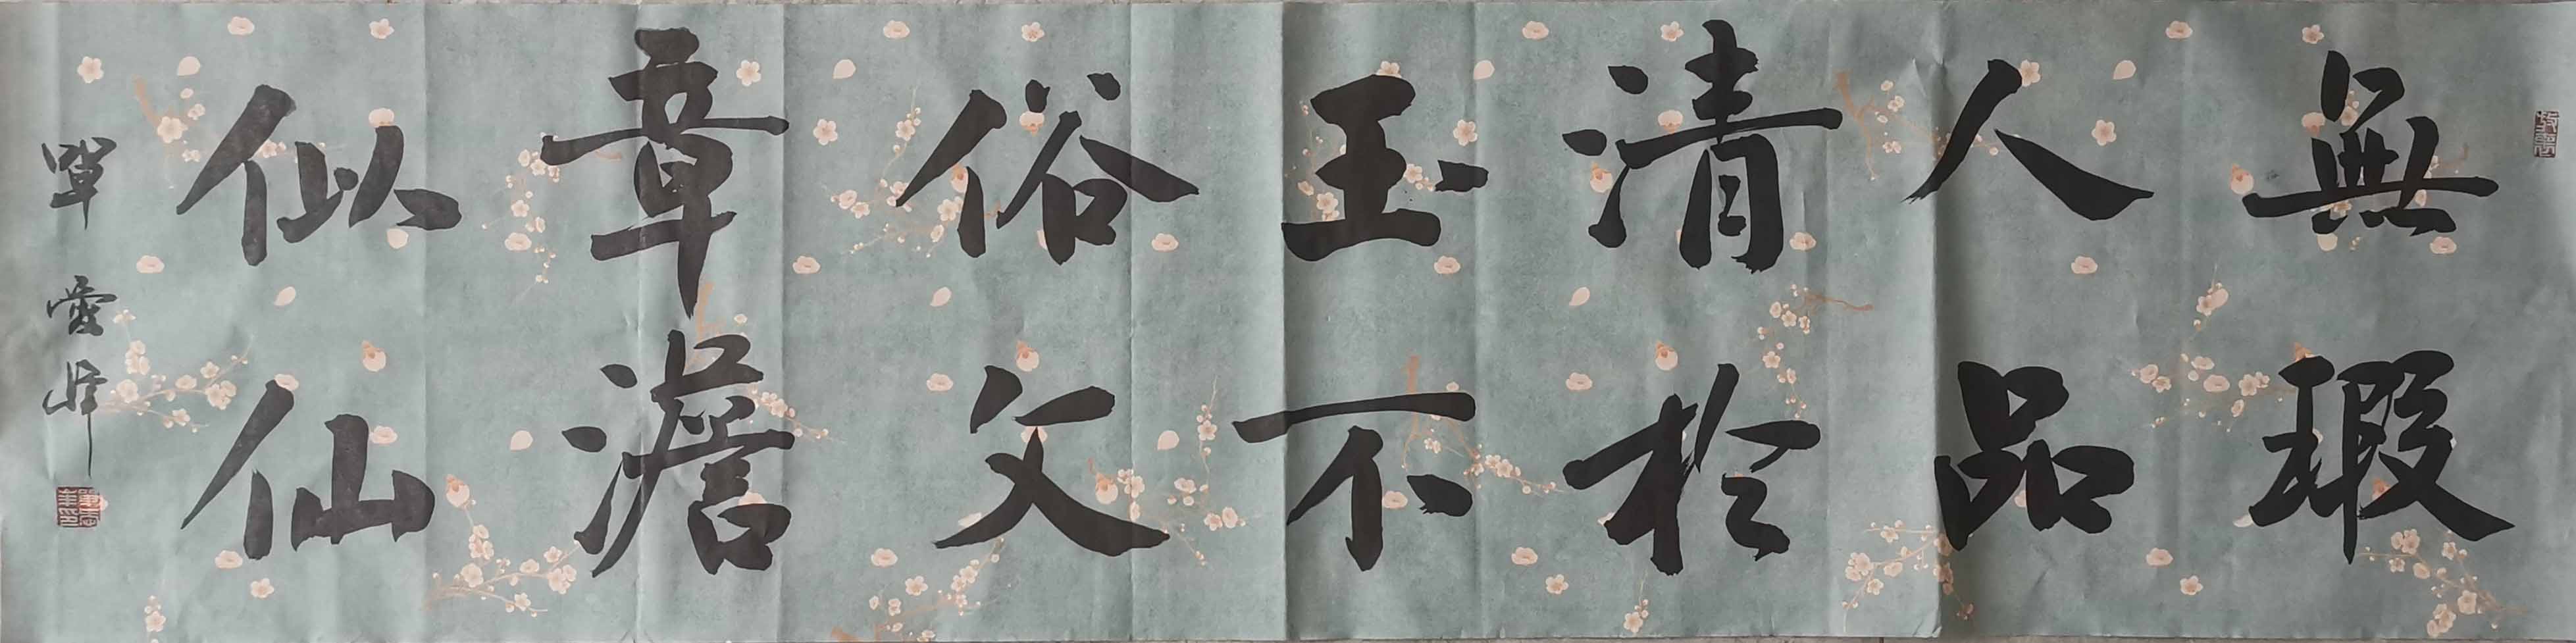 無瑕
人品
清於
玉不
俗文
章澹
似仙
單愛峰